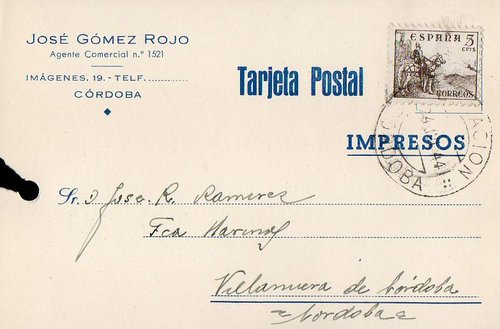 JOSÉ GÓMEZ ROJO
Agente Comercial n.º 1521
IMÁGENES, 19. - TELF. ............
CÓRDOBA
Tarjeta Postal
ESPAÑA 5 CTS
CORREOS
IMPRESOS
44
CORDOBA
Sr. D. Jose R. Ramirez
Fca Harinas
Villanueva de Córdoba
Córdoba